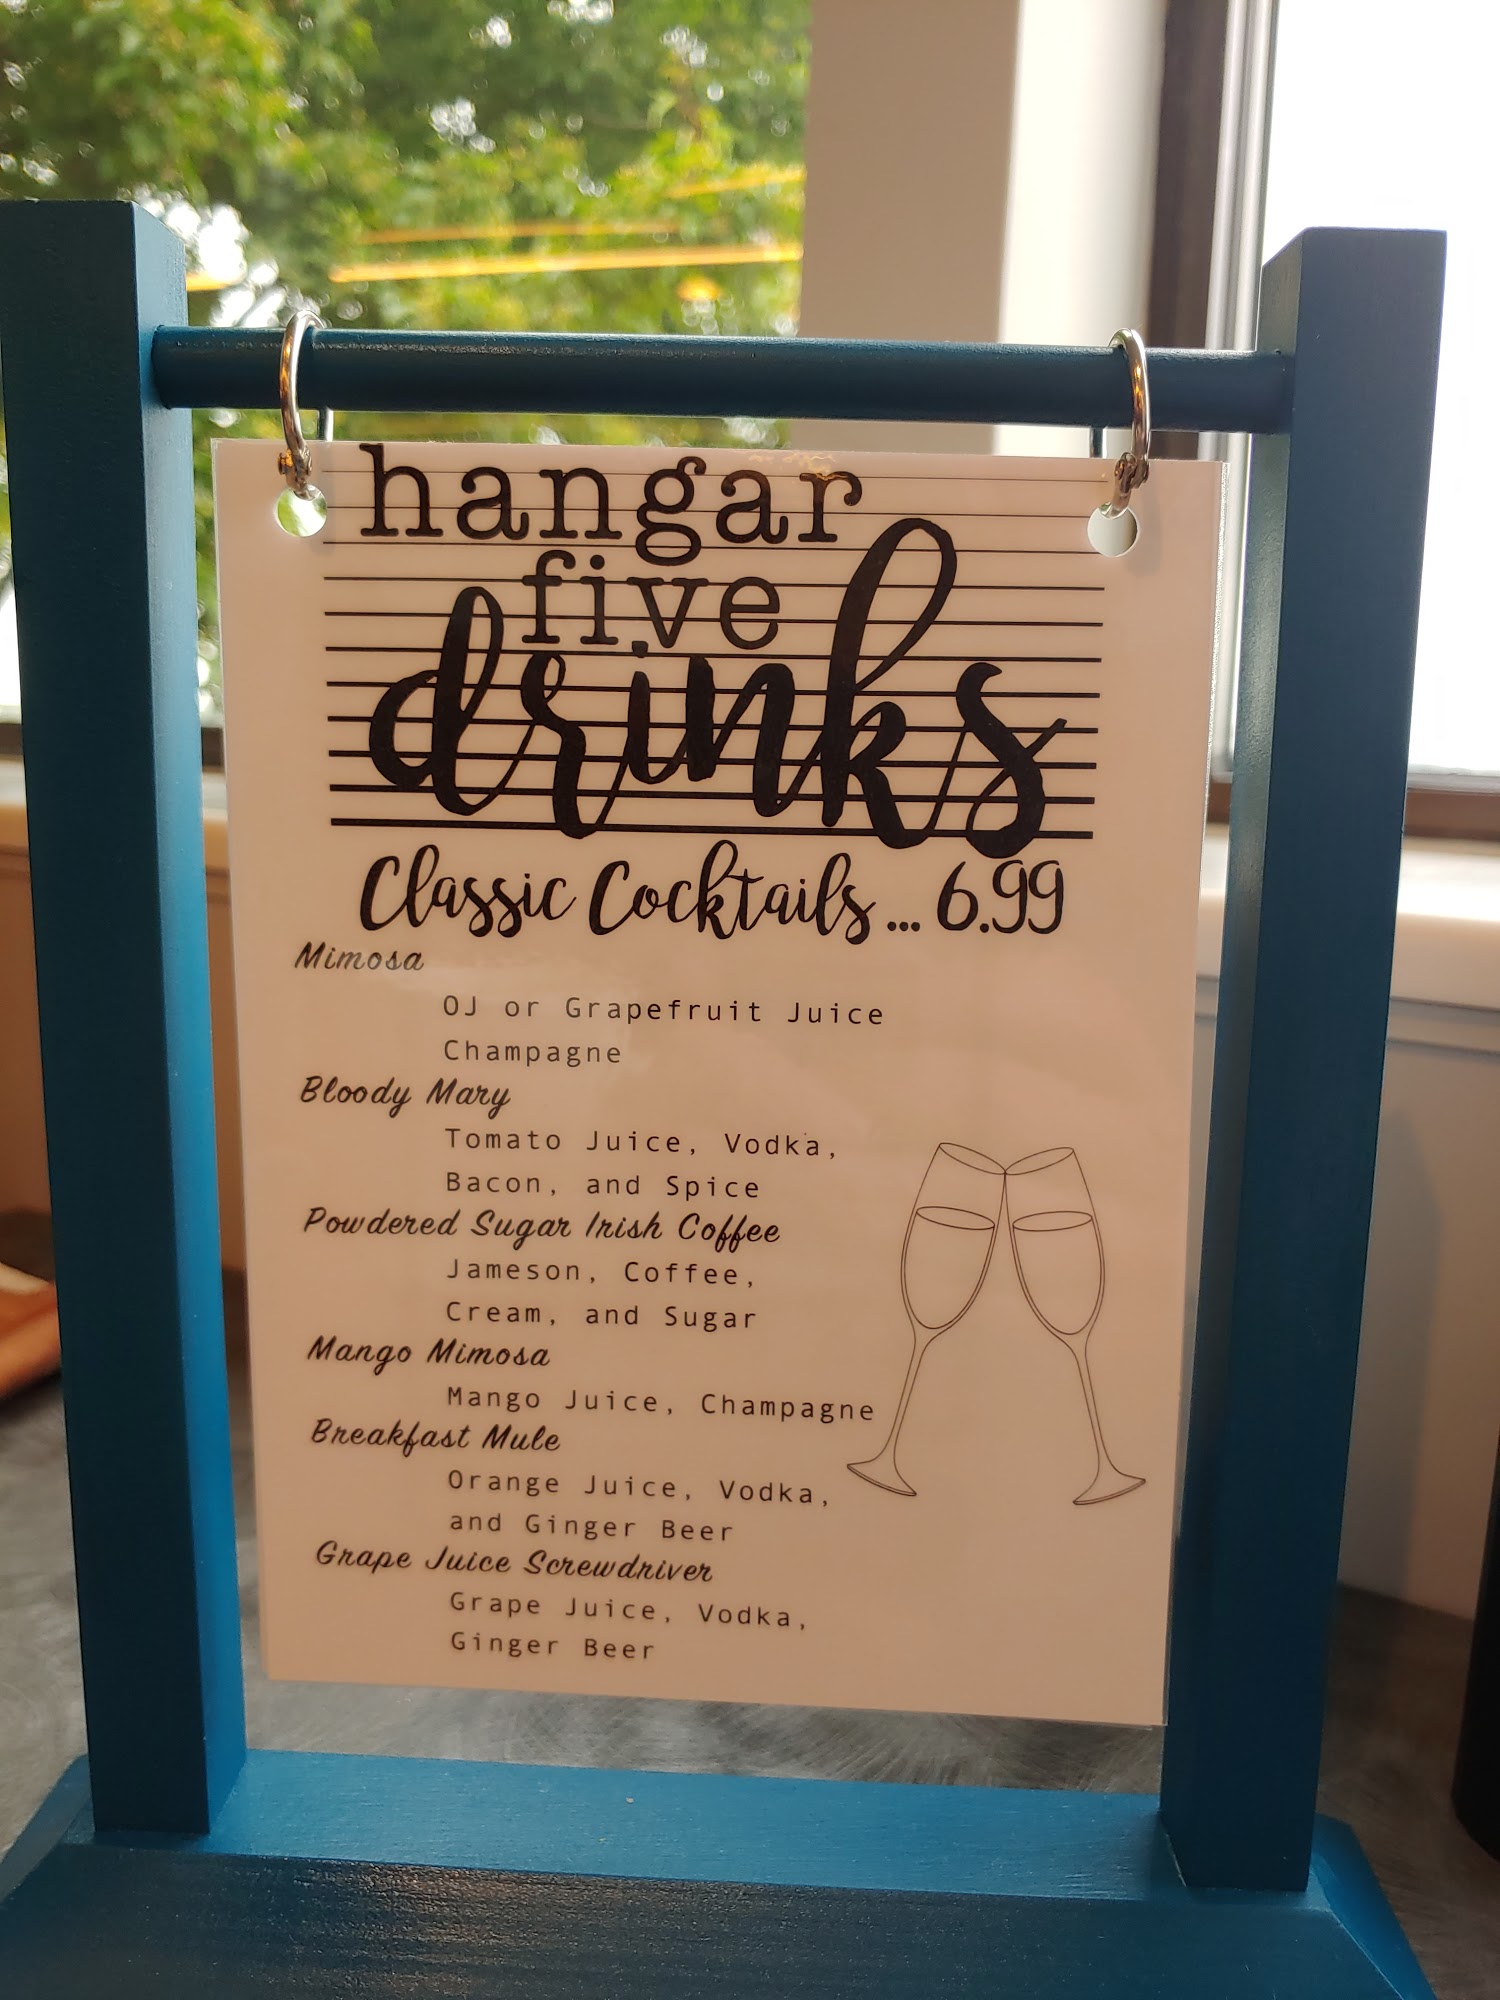 hangar
five
drinks
Classic Cocktails... 6.99
Mimosa
OJ or Grapefruit Juice
Champagne
Bloody Mary
Tomato Juice, Vodka,
Bacon, and Spice
Powdered Sugar Irish Coffee
Jameson, Coffee,
Cream, and Sugar
Mango Mimosa
Mango Juice, Champagne
Breakfast Mule
Orange Juice, Vodka,
and Ginger Beer
Grape Juice Screwdriver
Grape Juice, Vodka,
Ginger Beer